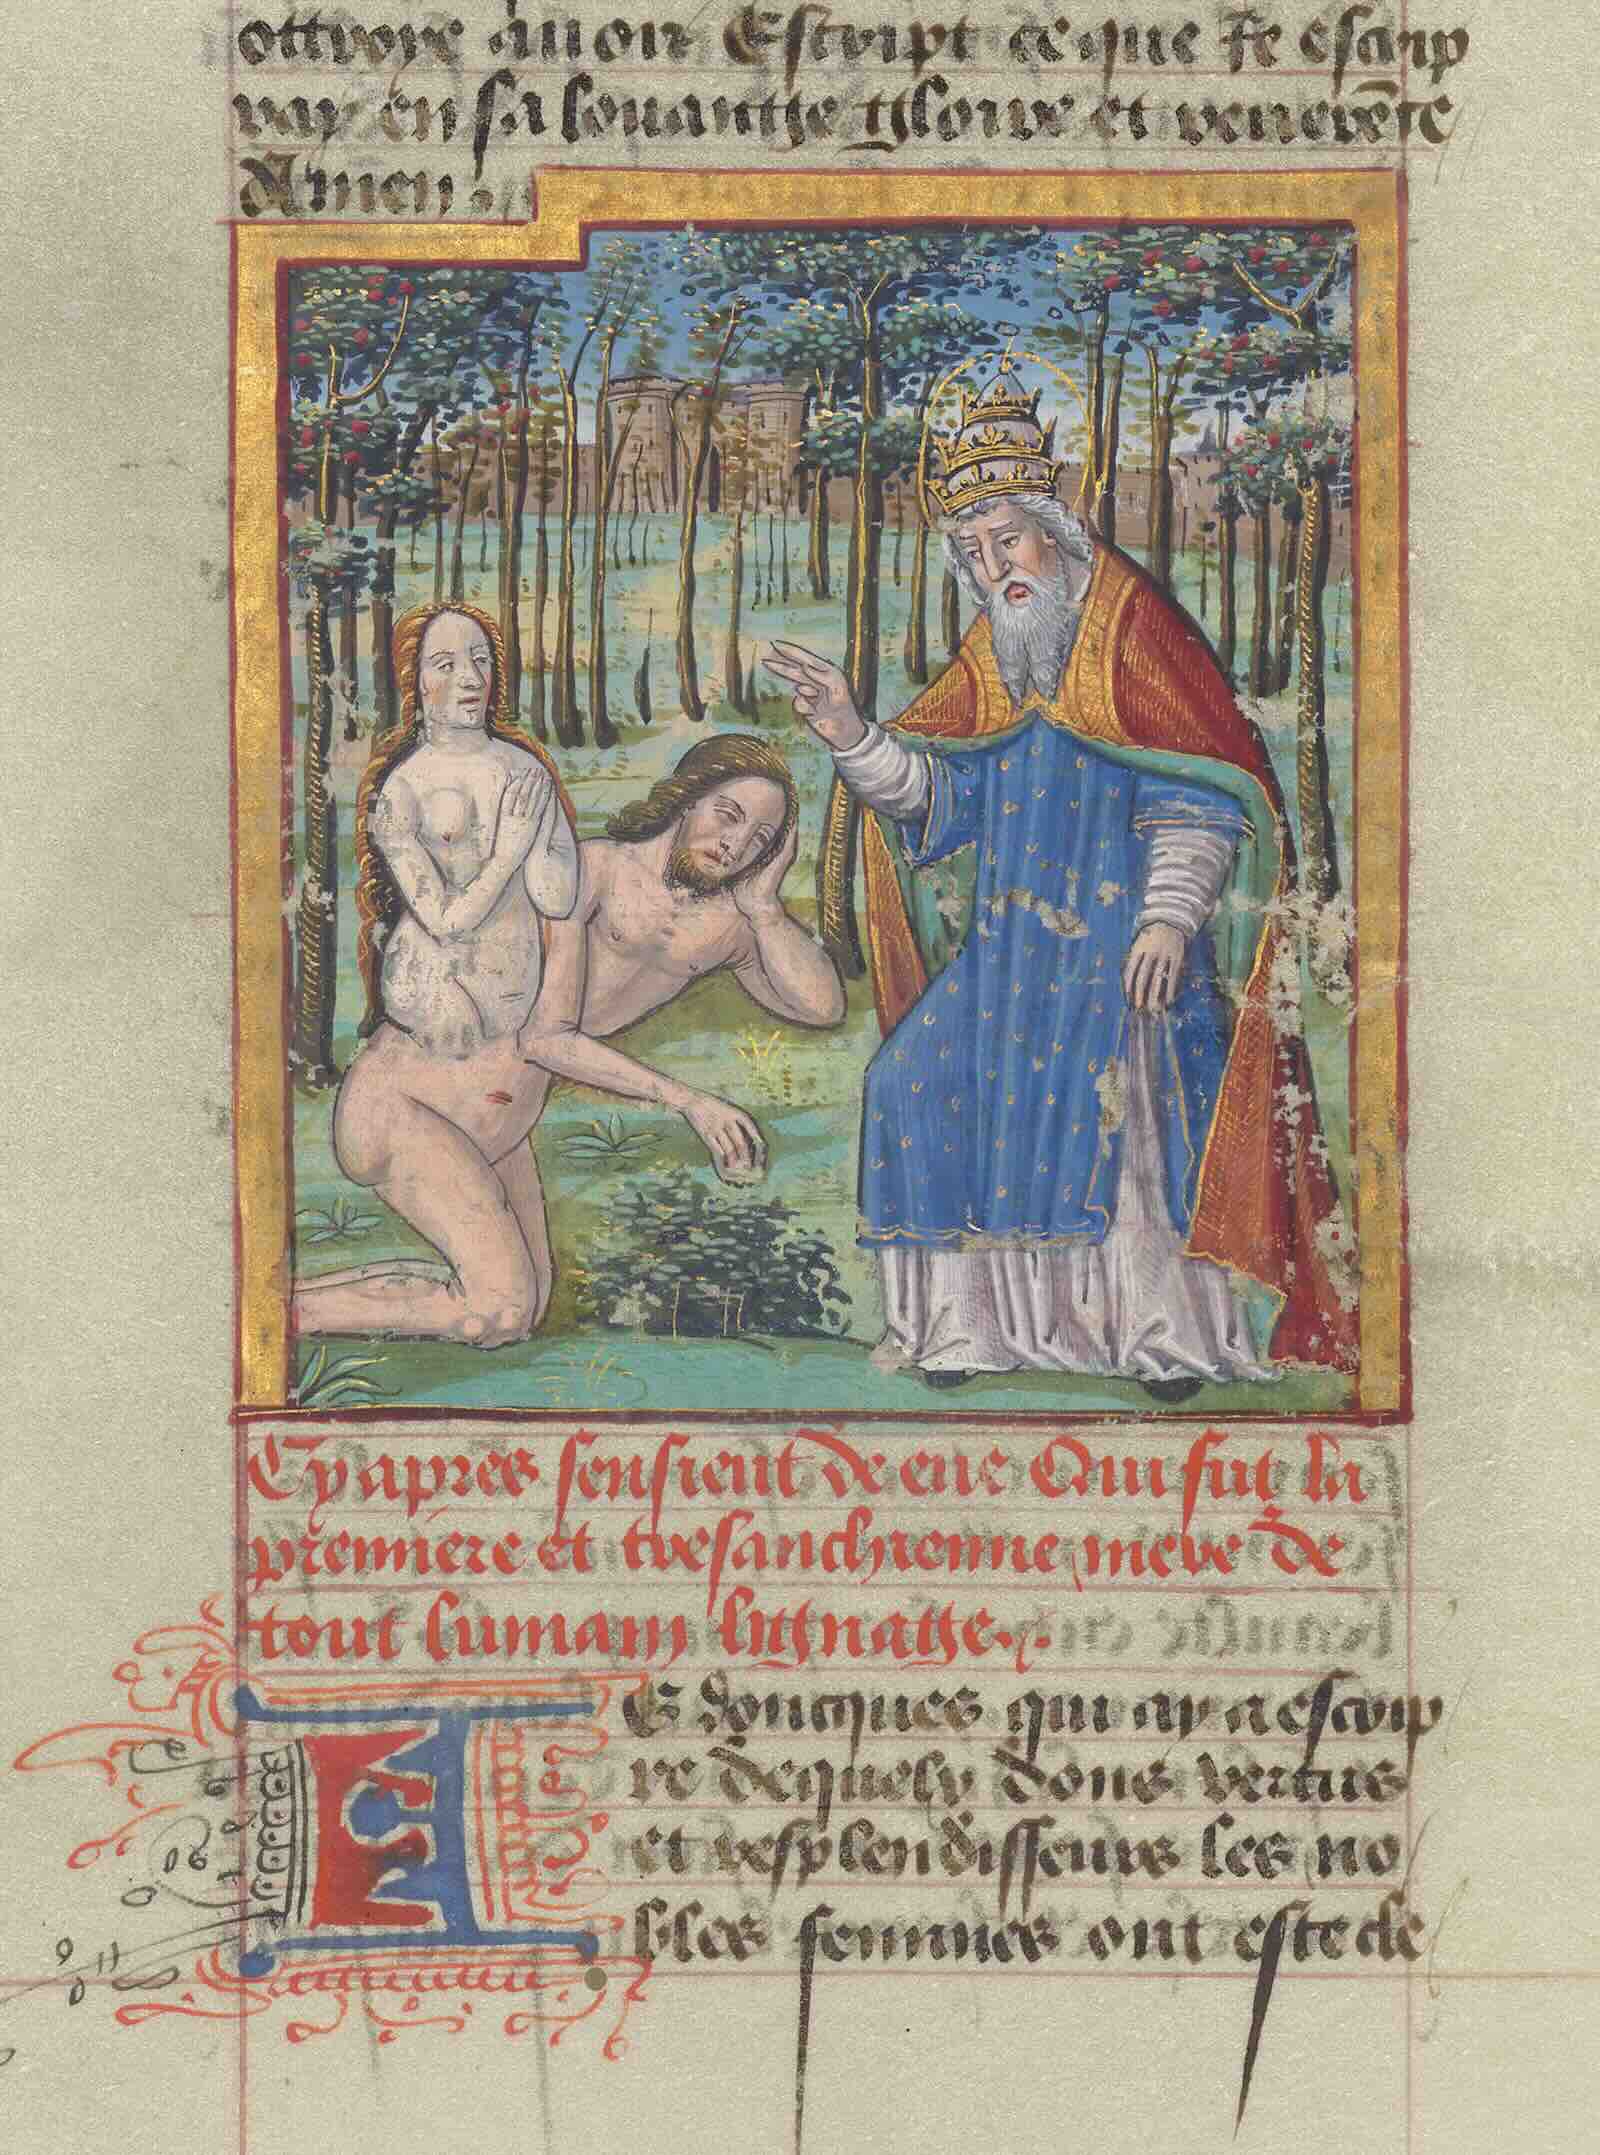 ottroye auoir Escript ce que Je escrip
ray en sa louantge tglorie et reuerēce
Amen.
Cy apres sensieut de eue Qui fut la
premiere et tresanchienne mere de
tout lumain lignatge.
IE doncques qui ay a escrip
re dequely dons vertus
et resplendisseurs les no
bles femmes ont este de